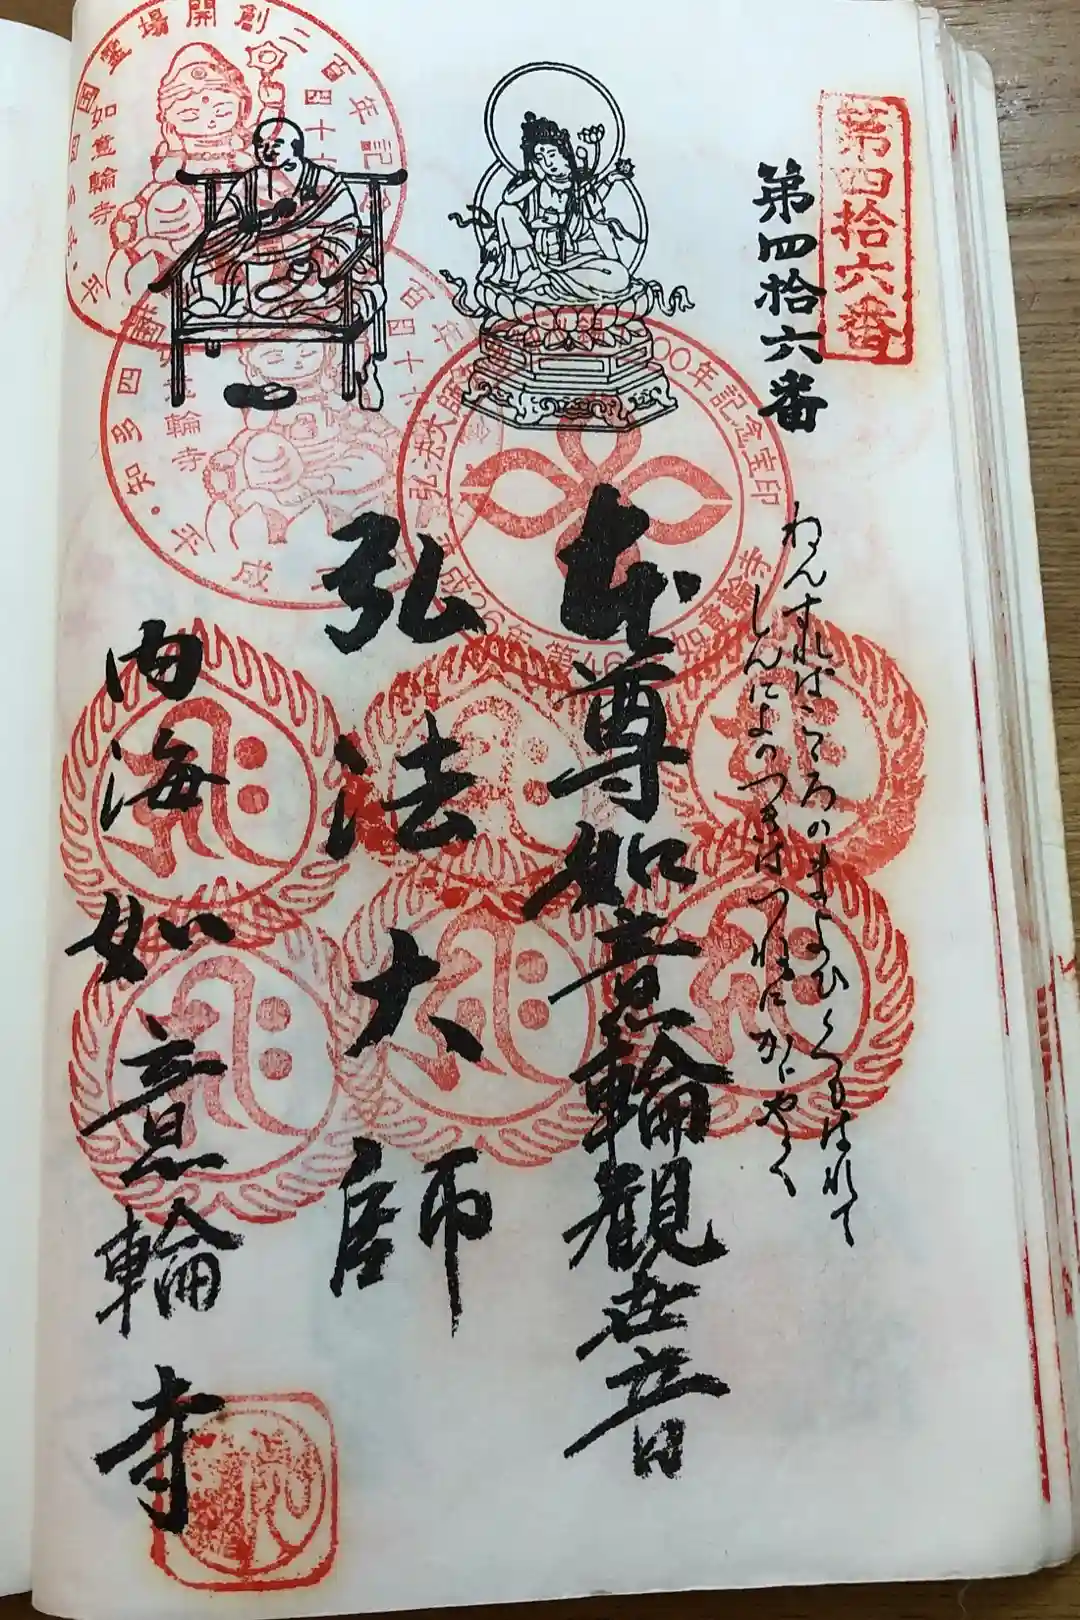 第四拾六番
第四拾六番
ねんすればこころのまよひくもはれて
しんによのつきはつねにかゞやく
本尊如意輪観世音
弘法大師
内海如意輪寺
霊場開創二百四十六年記
如意輪寺
知多四国
平成
百四十六
年
如意輪寺
知多四国
平成
弘法大師
00年記念宝印
平成26年
第46番
如意輪寺